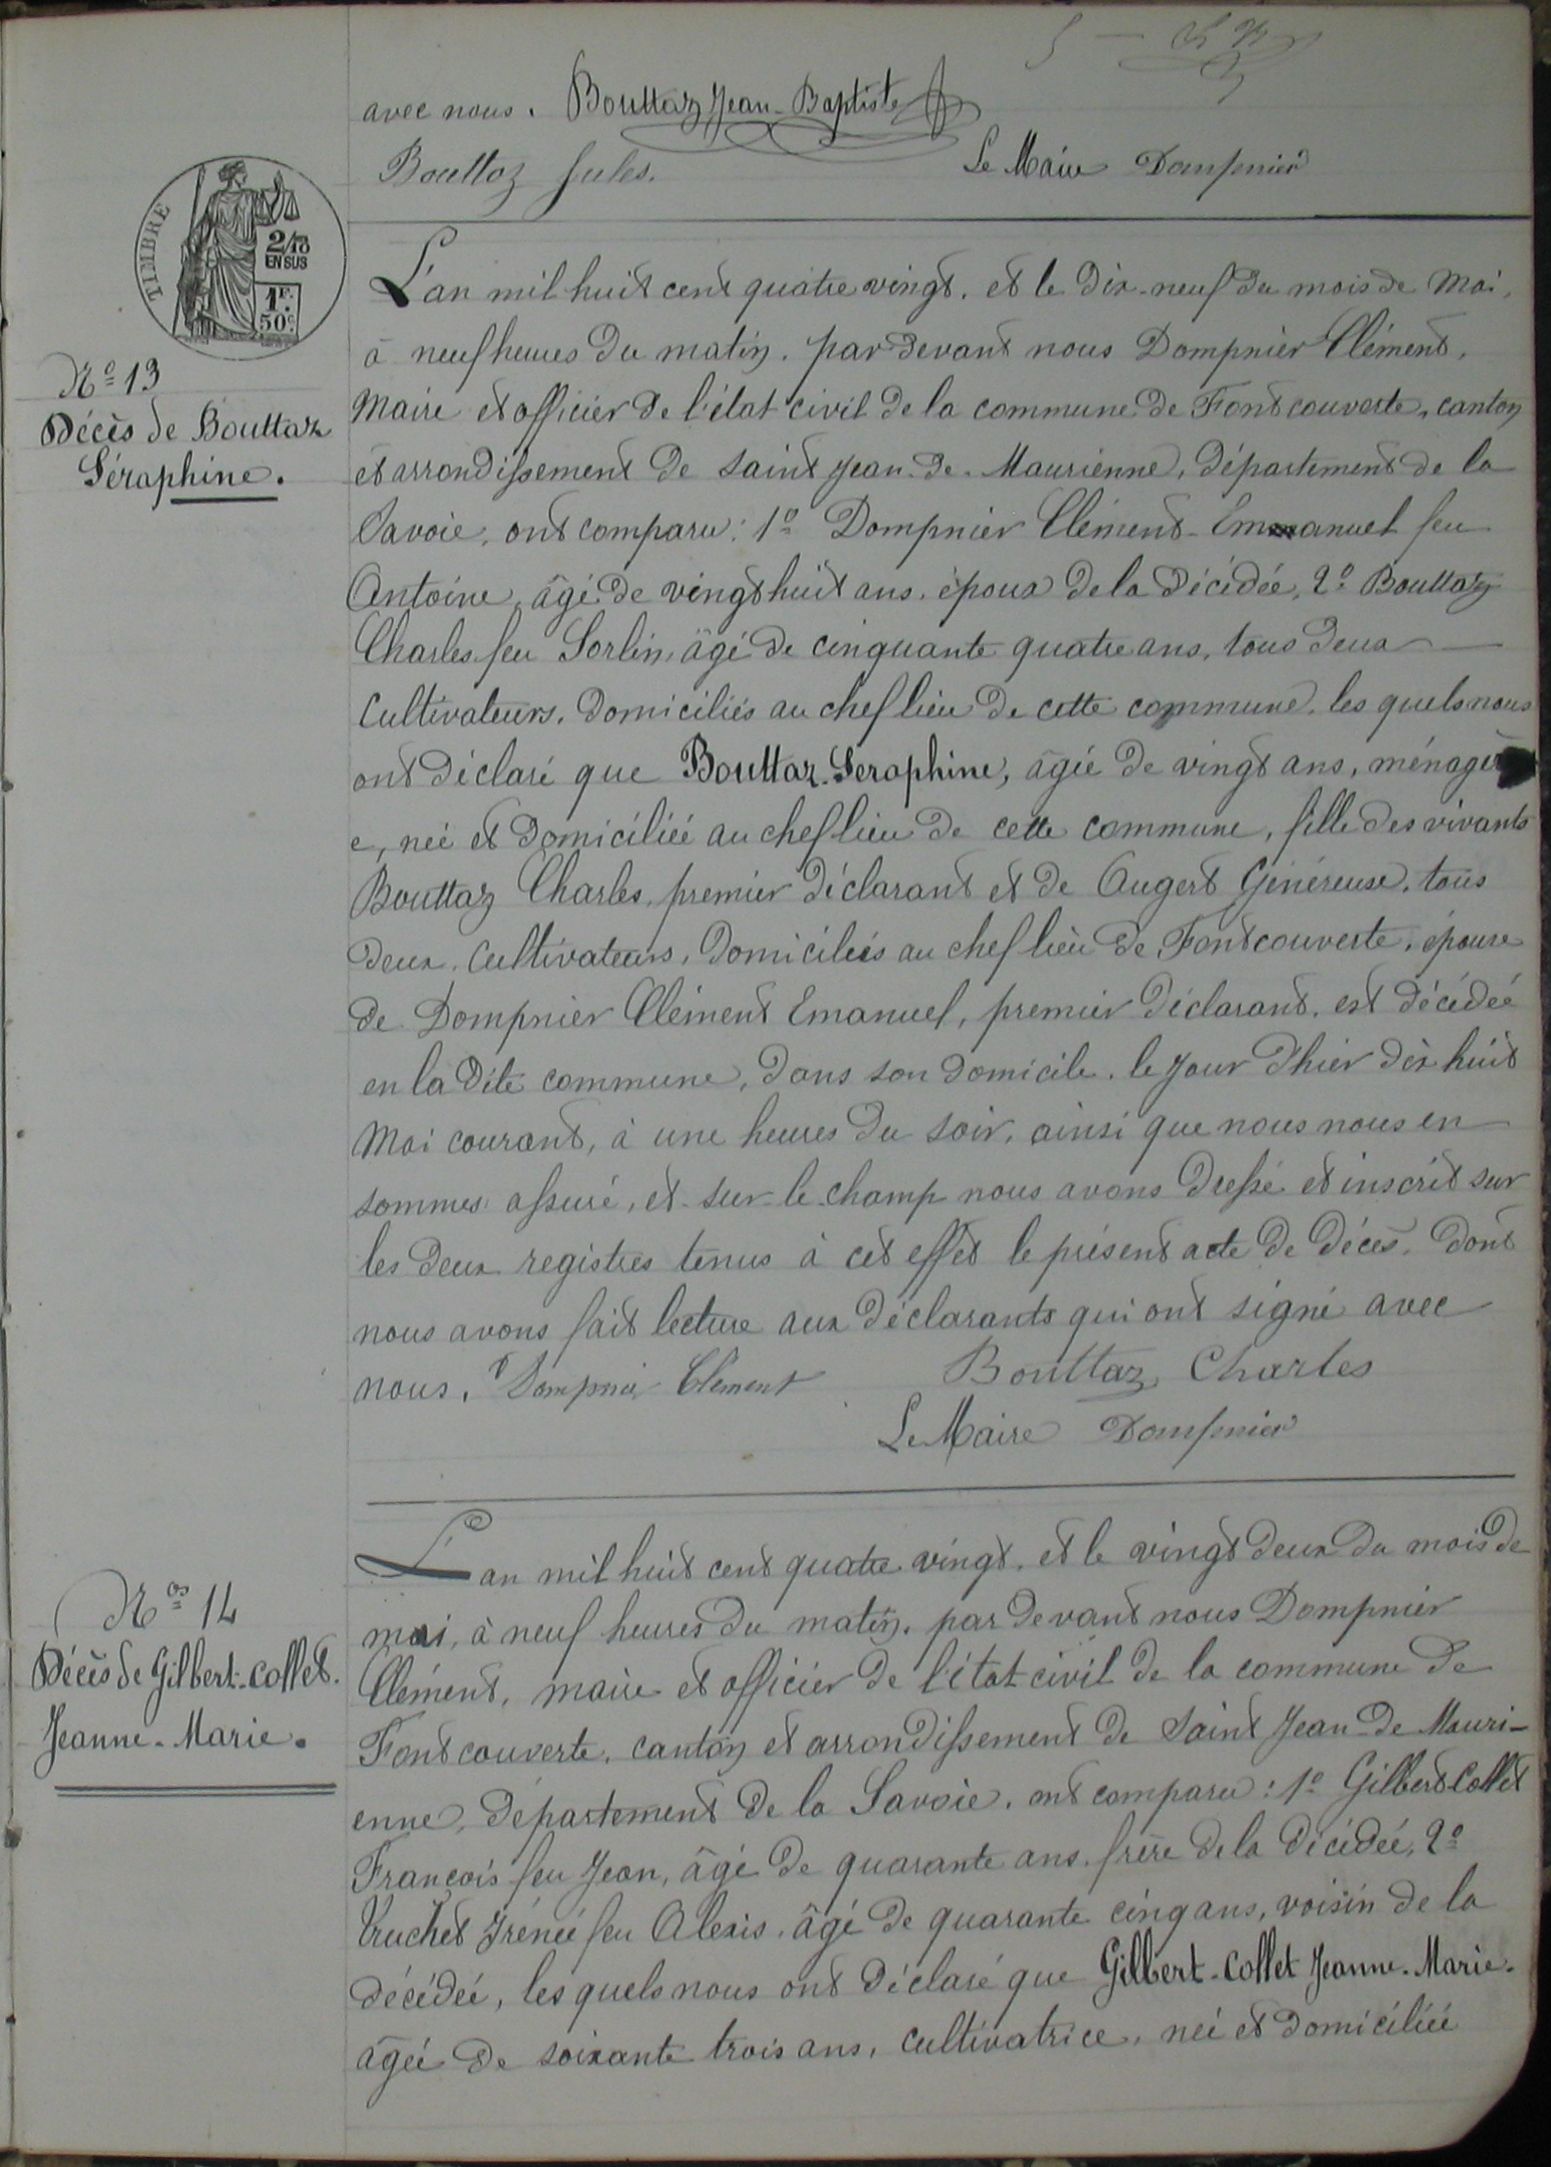 avec nous. Bouttaz Jean-Baptiste
Bouttaz Jules. Le Maire Dompnier
TIMBRE
2/10
EN SUS
1F.
50c.
L'an mil huit cent quatre vingt. et le dix-neuf du mois de Mai,
à neuf heures du matin. par devant nous Dompnier Clément,
Maire et officier de l'état civil de la commune de Fontcouverte, canton
et arrondissement de Saint Jean-de-Maurienne, département de la
Savoie, ont comparu: 1º Dompnier Clément-Emmanuel feu
Antoine, âgé de vingt huit ans. époux de la décédée, 2º Bouttaz
Charles feu Sorlin, âgé de cinquante quatre ans, tous deux
Cultivateurs, domiciliés au chef lieu de cette commune, les quels nous
ont déclaré que Bouttaz Séraphine, âgée de vingt ans, ménagèr
e, née et domiciliée au chef lieu de cette commune, fille des vivants
Bouttaz Charles, premier déclarant et de Augert Généreuse, tous
deux Cultivateurs, domiciliés au chef lieu de Fontcouverte, épouse
de Dompnier Clément Emanuel, premier déclarant, est décédée
en la dite commune, dans son domicile, le jour d'hier dix huit
Mai courant, à une heures du soir, ainsi que nous nous en
sommes assuré, et sur-le-champ nous avons dressé et inscrit sur
les deux registres tenus à cet effet le présent acte de décès, dont
nous avons fait lecture aux déclarants qui ont signé avec
nous. Dompnier Clément Bouttaz Charles
Le Maire Dompnier
Nº 13
Décès de Bouttaz
Séraphine.
L'an mil huit cent quatre vingt, et le vingt deux du mois de
mai, à neuf heures du matin, par devant nous Dompnier
Clément, maire et officier de l'état civil de la commune de
Fontcouverte, canton et arrondissement de Saint Jean-de-Mauri-
enne, département de la Savoie, ont comparu: 1º Gilbert-Collet
François feu Jean, âgé de quarante ans, frère de la décédée, 2º
Truchet Irénée feu Alexis, âgé de quarante cinq ans, voisin de la
décédée, les quels nous ont déclaré que Gilbert-Collet Jeanne-Marie.
âgée de soixante trois ans, cultivatrice, née et domiciliée
Nº 14
Décès de Gilbert-Collet.
Jeanne-Marie.